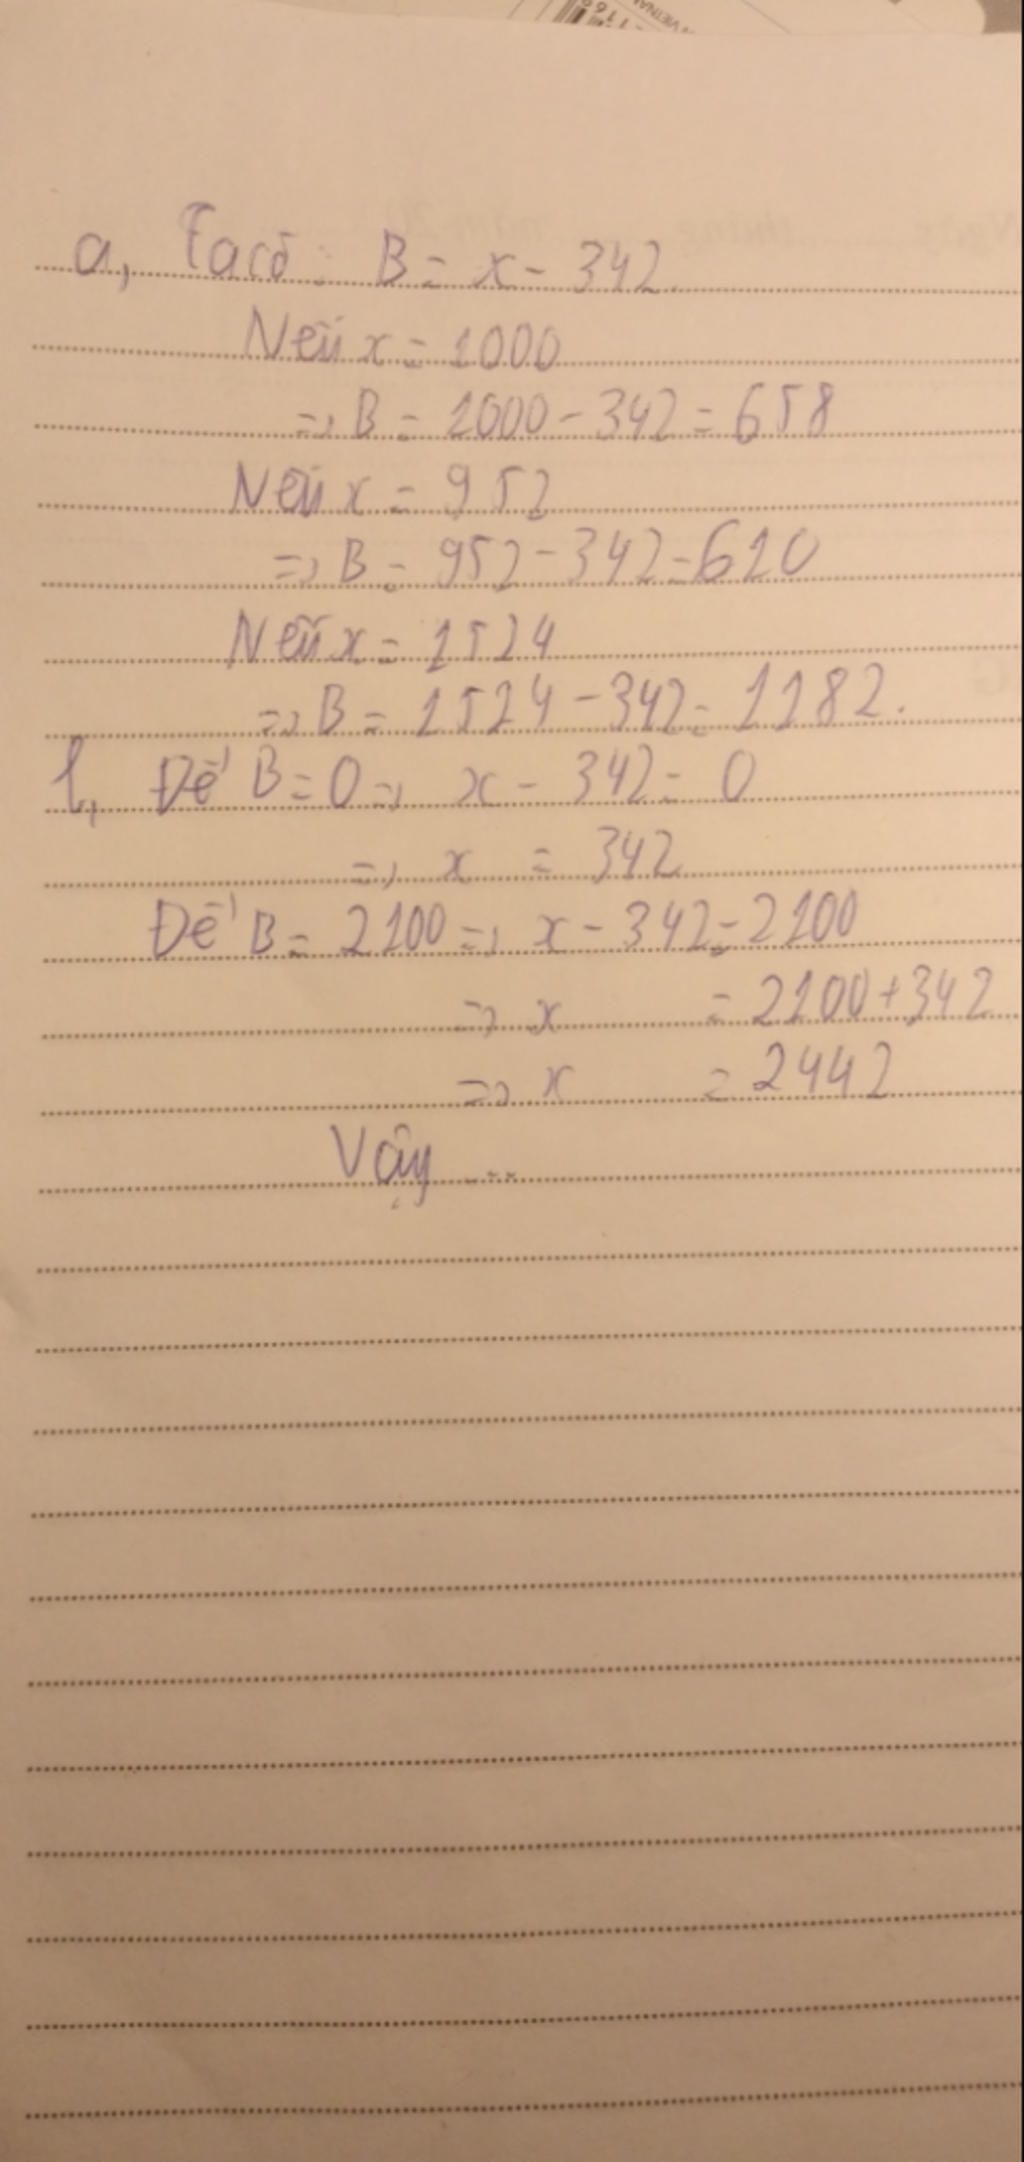 a, Ta có: B = x - 342
Nếu x = 1000
=> B = 1000 - 342 = 658
Nếu x = 952
=> B = 952 - 342 = 610
Nếu x = 1524
=> B = 1524 - 342 = 1182.
b, Để B = 0 => x - 342 = 0
=> x = 342
Để B = 2100 => x - 342 = 2100
=> x = 2100 + 342
=> x = 2442
Vậy ...